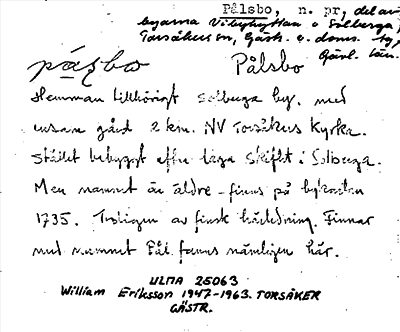 Pålsbo, n. pr, del av
byarna Vibyhyttan o Solberga,
Torsåkers sn, Gästr. o. doms. tg,
Gävl. län.
påʃbo Pålsbo
Hemman tillhörigt Solberga by. med
ensam gård 2 km. NV Torsåkers Kyrka.
Stället bebyggt efter laga skiftet i Solberga.
Men namnet är äldre - finns på bykartan
1735. Troligen av finsk härledning. Finnar
med namnet Pål fanns nämligen här.
ULMA 25063
William Eriksson 1947-1963. TORSÅKER
GÄSTR.